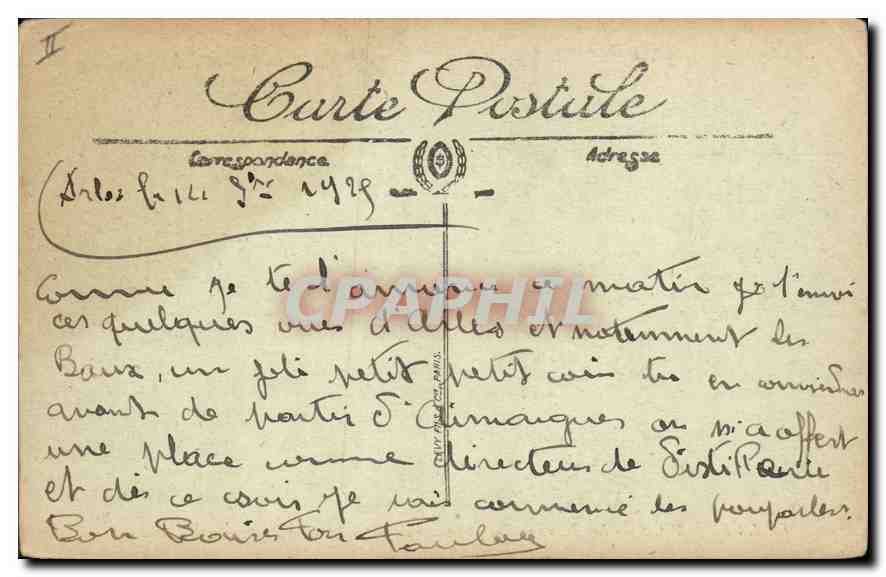 II
Carte Postale
Correspondance
Adresse
Arles le 14 9bre 1925
Comme je te l'annonce ce matin je t'envoi
ces quelques vues d'Arles et notemment les
Baux, un joli petit petit coin tu en
avant de partir d' on m'a offert
une place comme directeur de
et dès ce soir je vais commencé les pourparlers.
Bon Baiser Ton
LEVY FILS & Cie, PARIS.
CPAPHIL